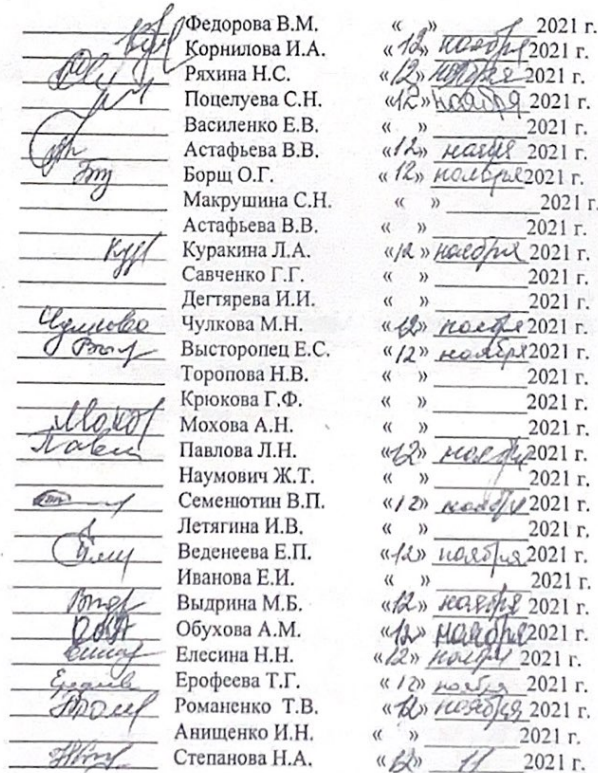 Федорова В.М. « » 2021 г.
Корнилова И.А. «12» ноября 2021 г.
Ряхина Н.С. «12» ноября 2021 г.
Поцелуева С.Н. «12» ноября 2021 г.
Василенко Е.В. « » 2021 г.
Астафьева В.В. «12» ноября 2021 г.
Борщ О.Г. «12» ноября 2021 г.
Макрушина С.Н. « » 2021 г.
Астафьева В.В. « » 2021 г.
Куракина Л.А. «12» ноября 2021 г.
Савченко Г.Г. « » 2021 г.
Дегтярева И.И. « » 2021 г.
Чулкова М.Н. «12» ноября 2021 г.
Высторопец Е.С. «12» ноября 2021 г.
Торопова Н.В. « » 2021 г.
Крюкова Г.Ф. « » 2021 г.
Мохов Мохова А.Н. « » 2021 г.
Павлова Л.Н. «12» ноября 2021 г.
Наумович Ж.Т. « » 2021 г.
Семенютин В.П. «12» ноября 2021 г.
Летягина И.В. « » 2021 г.
Веденеева Е.П. «12» ноября 2021 г.
Иванова Е.И. « » 2021 г.
Выдрина М.Б. «12» ноября 2021 г.
Обухова А.М. «12» ноября 2021 г.
Елесина Н.Н. «12» ноября 2021 г.
Ерофеева Т.Г. «12» ноября 2021 г.
Романенко Т.В. «12» ноября 2021 г.
Анищенко И.Н. « » 2021 г.
Степанова Н.А. «12» 11 2021 г.